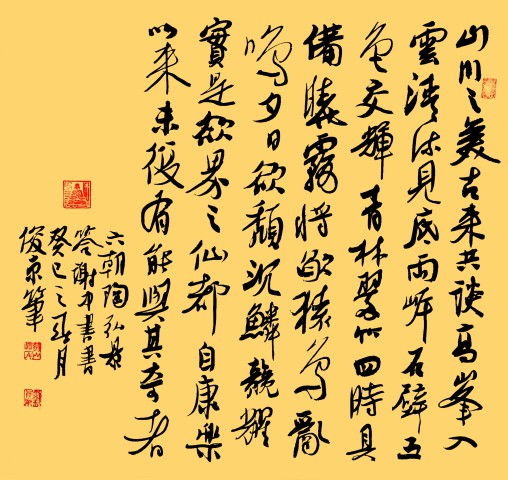 山川之美古来共談高峯入
雲清流見底兩岸石壁五
色交輝青林翠竹四時具
備曉霧將歇猿鳥亂
鳴夕日欲頹沉鱗競躍
實是欲界之仙都自康樂
以来未復有能與其奇者
六朝陶弘景
答謝中書書
癸巳之夏月
俊京筆